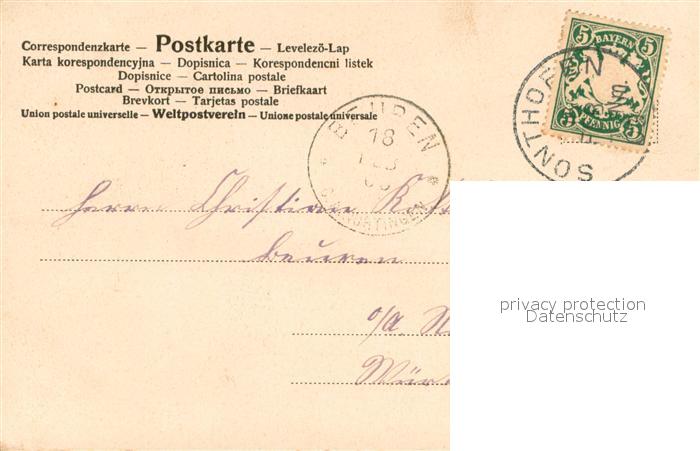 Correspondenzkarte — Postkarte — Levelező-Lap
Karta korespondencyjna — Dopisnica — Korespondencni listek
Dopisnice — Cartolina postale
Postcard — Открытое письмо — Briefkaart
Brevkort — Tarjetas postale
Union postale universelle — Weltpostverein — Unione postale universale
5 BAYERN 5
5 PFENNIG 5
SONTHOFEN
BEUREN
18
FEB
Herrn Christian
Beuren
o/A. N
Wür
privacy protection
Datenschutz